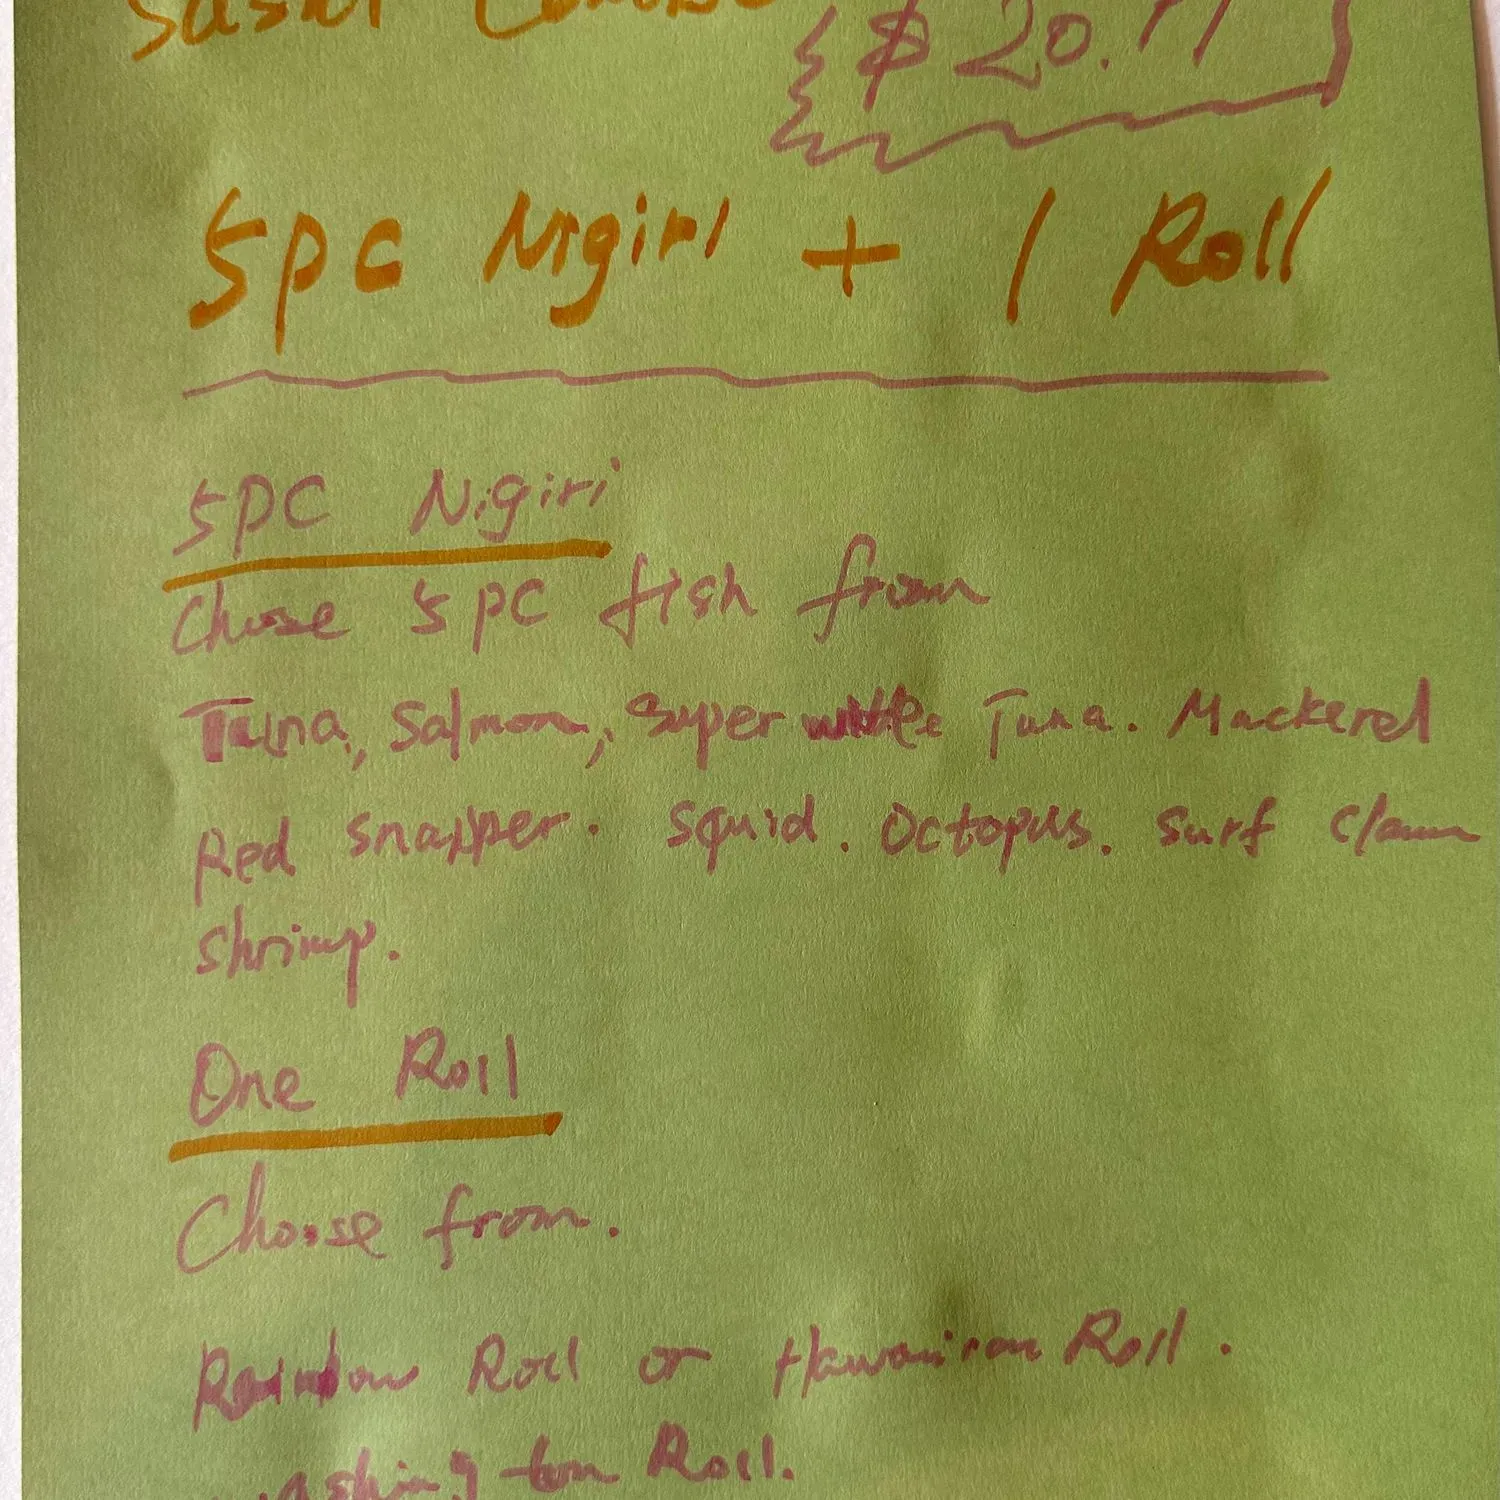 Sushi Combo
$20.
5PC Nigiri + 1 Roll
5PC Nigiri
Choose 5PC fish from
Tuna, Salmon, Super white Tuna. Mackerel
Red snapper. Squid. Octopus. Surf clam
shrimp.
One Roll
Choose from.
Rainbow Roll or Hawaiian Roll.
ashington Roll.